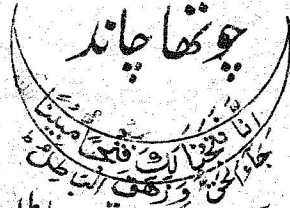 چوتھا چاند
اِنَّا فَتَحْنَا لَكَ فَتْحًا مُّبِیْنًا
جَآءَ الْحَقُّ وَزَهَقَ الْبَاطِلُ ط